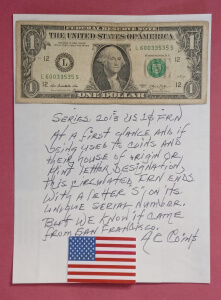 1
1
12 L
L 60033535 S
L 60033535 S
12
ONE DOLLAR
SERIES 2013 US $1 FRN
AT A FIRST GLANCE AND IF
BEING USED TO COINS AND
THEIR HOUSE OF ORIGIN OR
MINT LETTER DESIGNATION,
THIS CIRCULATED FRN ENDS
WITH A LETTER S ON ITS
UNIQUE SERIAL NUMBER.
BUT WE KNOW IT CAME
FROM SAN FRANCISCO.